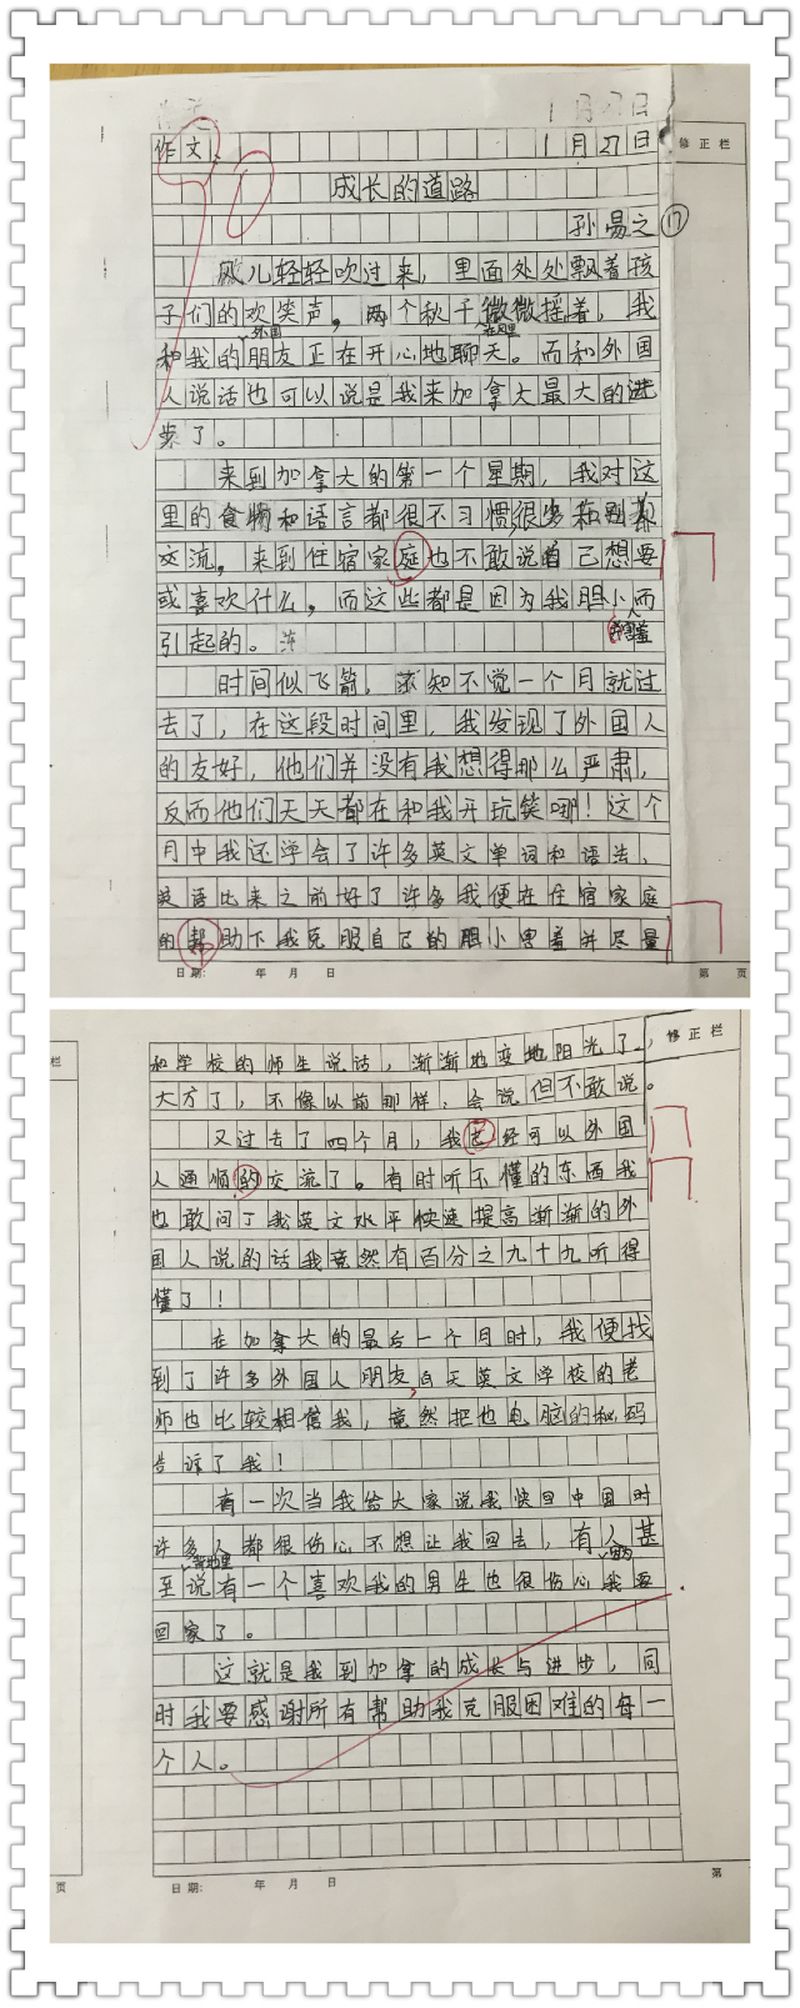 1月27日
作文: 1月27日 修正栏
成长的道路
孙易之 17
风儿轻轻吹过来，里面处处飘着孩
子们的欢笑声，两个秋千微微摇着，我
外国 在风里
和我的朋友正在开心地聊天。而和外国
人说话也可以说是我来加拿大最大的进
步了。
来到加拿大的第一个星期，我对这
里的食物和语言都很不习惯，很少和别
交流，来到住宿家庭也不敢说自己想要
或喜欢什么，而这些都是因为我胆小而
人 害羞
引起的。
时间似飞箭，不知不觉一个月就过
去了，在这段时间里，我发现了外国人
的友好，他们并没有我想得那么严肃，
反而他们天天都在和我开玩笑哪！这个
月中我还学会了许多英文单词和语法，
英语比来之前好了许多我便在住宿家庭
的帮助下我克服自己的胆小害羞并尽量
日期: 年 月 日 第 页
栏 修正栏
和学校的师生说话，渐渐地变地阳光了，
大方了，不像以前那样，会说但不敢说。
又过去了四个月，我已经可以外国
人通顺的交流了。有时听不懂的东西我
也敢问了我英文水平快速提高渐渐的外
国人说的话我竟然有百分之九十九听得
懂了！
在加拿大的最后一个月时，我便找
到了许多外国人朋友，白天英文学校的老
师也比较相信我，竟然把他电脑的秘码
告诉了我！
有一次当我给大家说我快回中国时
许多人都很伤心不想让我回去，有人甚
因为
至说有一个喜欢我的男生也很伤心我要
回家了。
这就是我到加拿的成长与进步，同
时我要感谢所有帮助我克服困难的每一
个人。
页 日期: 年 月 日 第